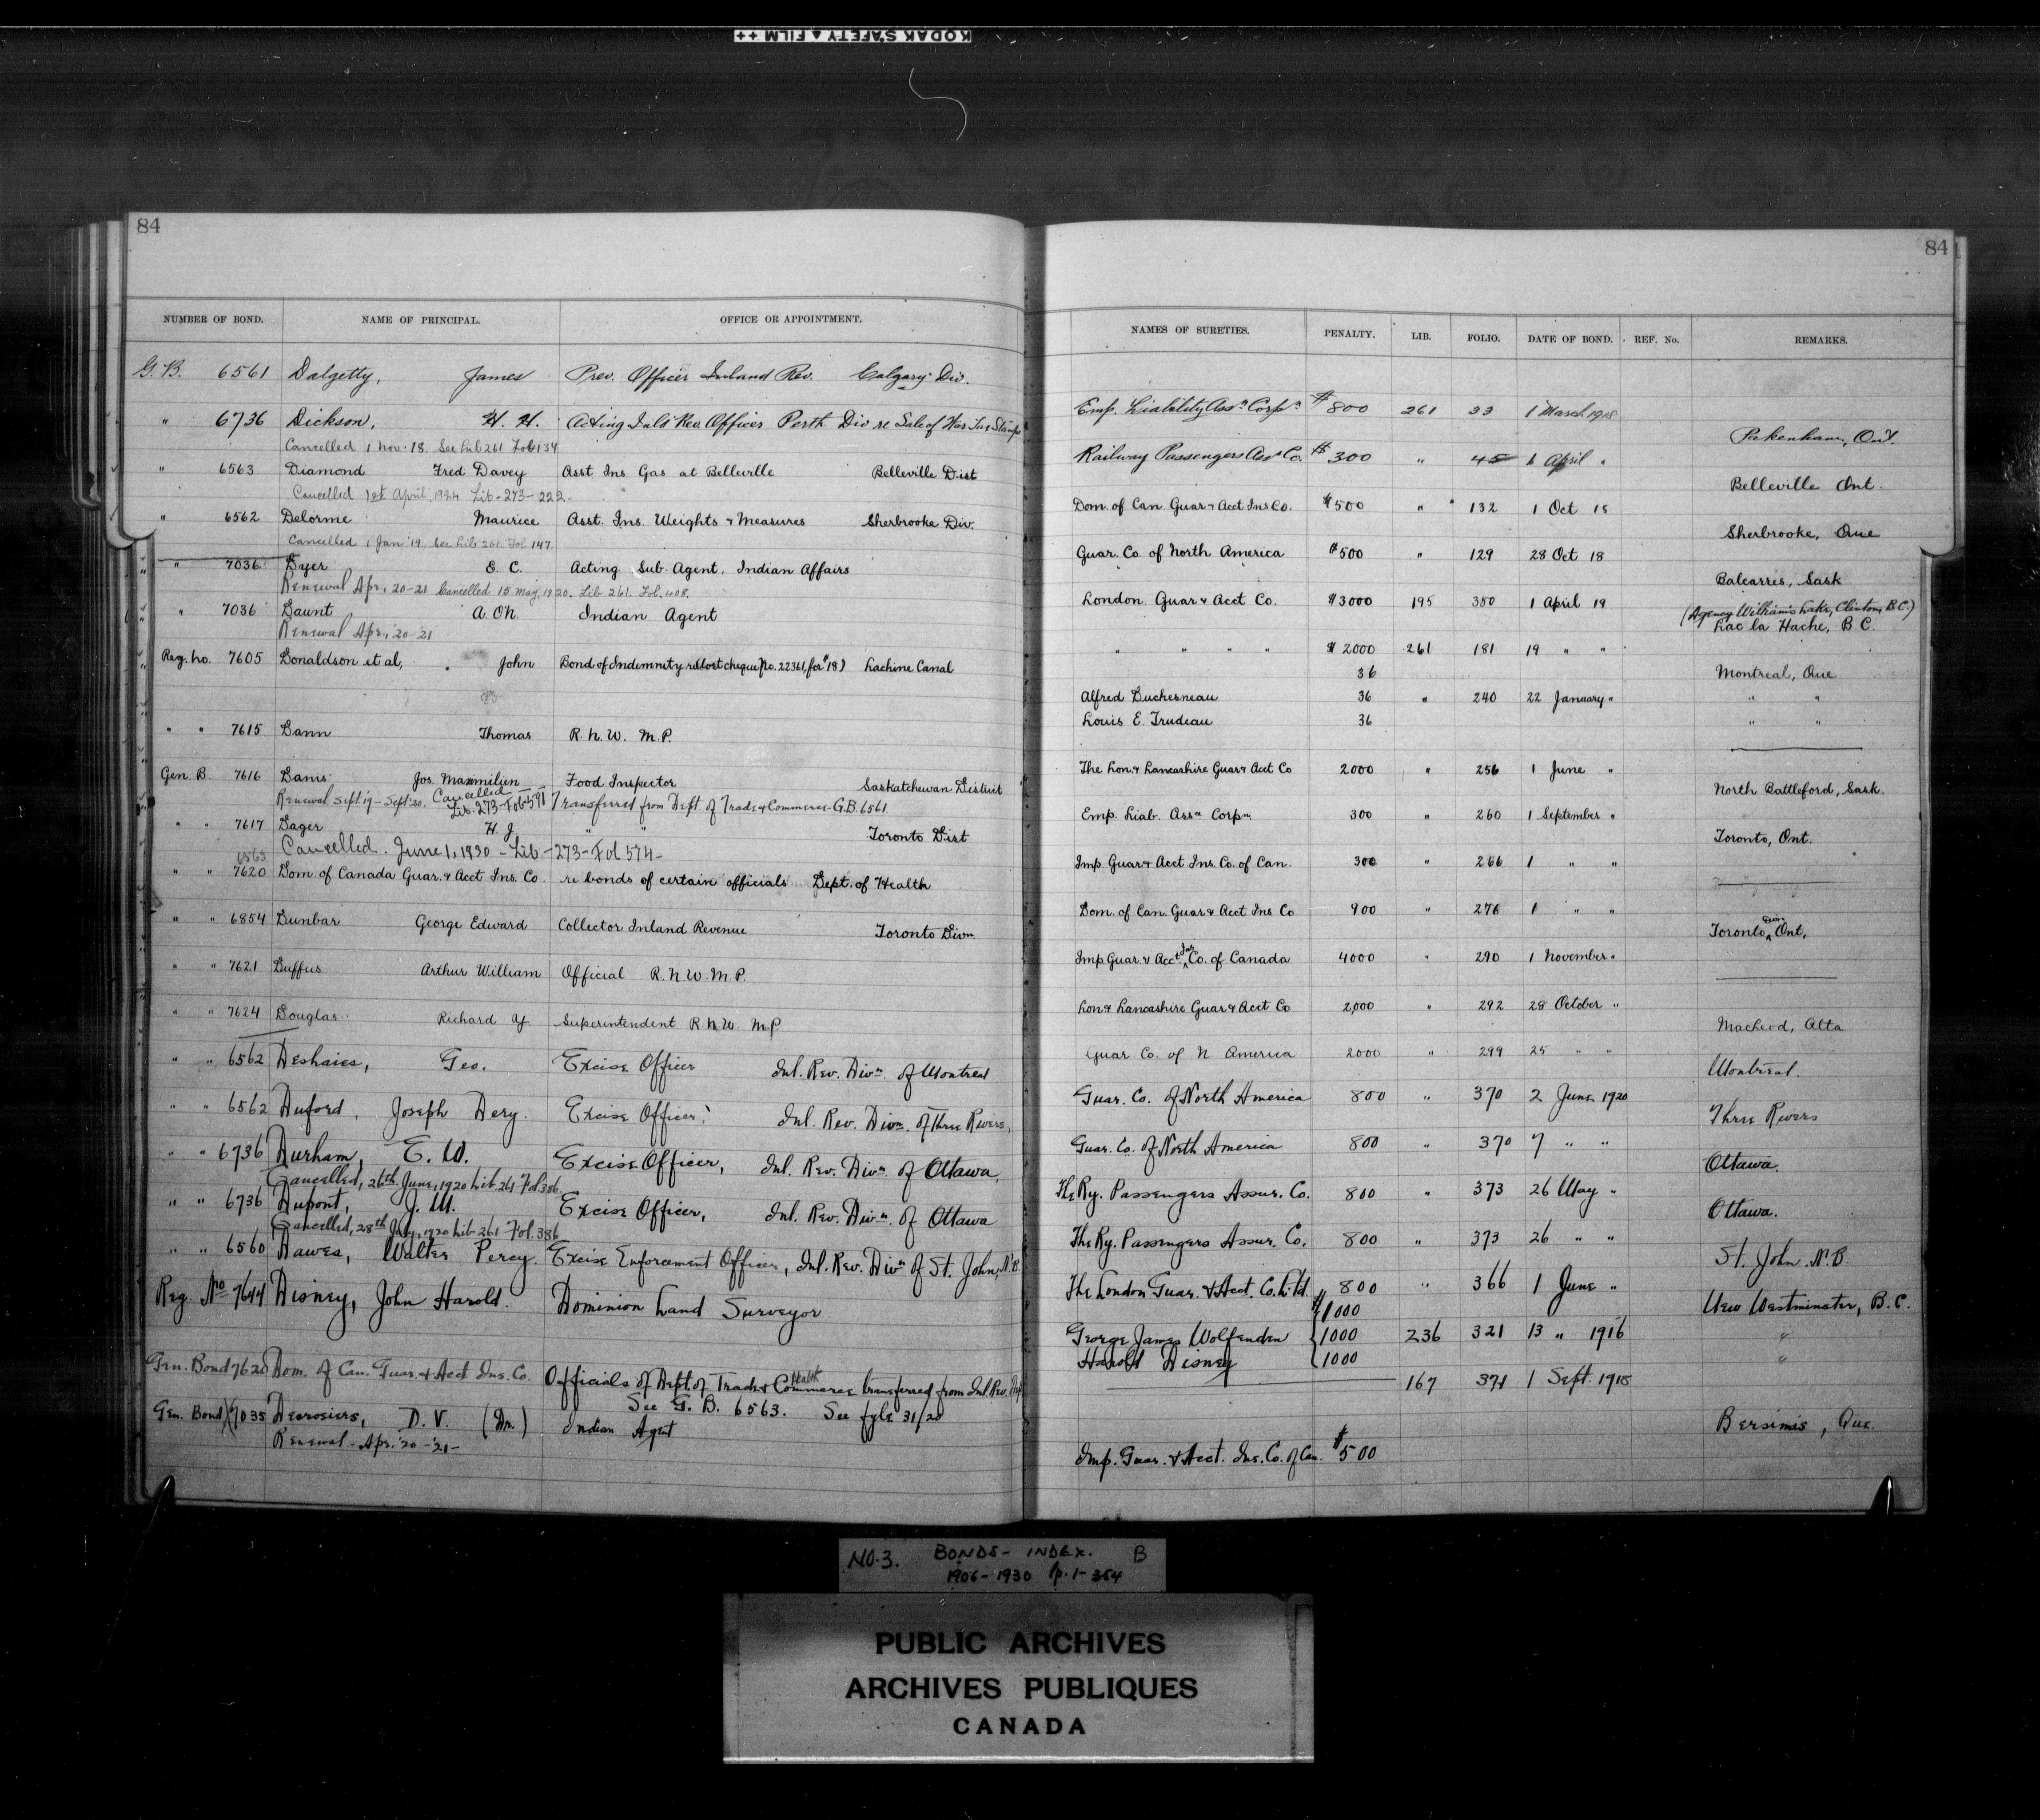 KODAK SAFETY ▲ FILM ++
84
NUMBER OF BOND. NAME OF PRINCIPAL. OFFICE OR APPOINTMENT.
G. B. 6561 Dalgetty, James Prev. Officer Inland Rev. Calgary Div.
" 6736 Dickson, H. H. Acting Inl'd Rev. Officer Perth Div re Sale of War Tax Stamps
Cancelled 1 Nov. 18. See Lib 261 Fol 134
" 6563 Diamond Fred Davey Asst. Ins. Gas at Belleville Belleville Dist
Cancelled 1st April, 1924 Lib-273-222-
" 6562 Delorme Maurice Asst. Ins. Weights & Measures Sherbrooke Div.
Cancelled 1 Jan '19. See Lib 261 Fol 147.
" 7036 Dyer E. C. Acting Sub Agent, Indian Affairs
Renewal Apr., 20-21 Cancelled 15 May 1920. Lib 261. Fol. 408.
" 7036 Daunt A. Oh. Indian Agent
Renewal Apr., '20-'21
Reg. No. 7605 Donaldson et al, John Bond of Indemnity re lost cheque (No. 22361, for $18) Lachine Canal
" " 7615 Dann Thomas R. N. W. M. P.
Gen. B 7616 Danis Jos. Maxmilien Food Inspector Saskatchewan District
Renewal Sept. 19 - Sept '20. Cancelled Lib. 273-Fol-591 Transferred from Dept. of Trade & Commerce - G.B. 6561
" " 7617 Dager H. J " " Toronto Dist
Cancelled. June 1, 1930 - Lib - 273 - Fol 574 -
6563
" " 7620 Dom. of Canada Guar. & Acct Ins. Co. re bonds of certain officials Dept. of Health
" " 6854 Dunbar George Edward Collector Inland Revenue Toronto Divn.
" " 7621 Duffus Arthur William Official R. N. W. M. P.
" " 7624 Douglas Richard Y Superintendent R N W M P
" " 6562 Deshaies, Geo. Excise Officer Inl. Rev. Divn. of Montreal
" " 6562 Duford, Joseph Dery. Excise Officer, Inl. Rev. Divn. of Three Rivers,
" " 6736 Durham, E. W. Excise Officer, Inl. Rev. Divn. of Ottawa,
Cancelled, 26th June, 1920 Lib-261-Fol. 386
" " 6736 Dupont, J. M. Excise Officer, Inl. Rev. Divn. of Ottawa
Cancelled, 28th July, 1920 Lib-261-Fol. 386
" " 6560 Dawes, Walter Percy. Excise Enforcement Officer, Inl. Rev. Divn of St. John, N.B.
Reg. No 7644 Disney, John Harold. Dominion Land Surveyor
Gen. Bond 7620 Dom. of Can. Guar. & Acct Ins. Co. Officials of Dept. of Trade & Commerce Health transferred from Inl. Rev. Dep
See G. B. 6563. See fyle 31/20
Gen. Bond 7035 Desrosiers, D. V. (Dr.) Indian Agent
Renewal - Apr. '20 - '21 -
84
NAMES OF SURETIES. PENALTY. LIB. FOLIO. DATE OF BOND. REF. No. REMARKS.
Emp. Liability Assn. Corpn. $800 261 33 1 March 1918
Pakenham, Ont.
Railway Passengers Ass. Co. $300 " 45 1 April "
Belleville Ont.
Dom. of Can Guar & Acct Ins Co. $500 " 132 1 Oct 18
Sherbrooke, Que
Guar. Co. of North America $500 " 129 28 Oct 18
Balcarres, Sask
London Guar & Acct Co. $3000 195 350 1 April 19
(Agency Williams Lake, Clinton, B.C.)
Lac la Hache, B. C.
" " " " $2000 261 181 19 " "
36 Montreal, Que
Alfred Duchesneau 36 " 240 22 January " " "
Louis E. Trudeau 36 " "
The Lon. & Lancashire Guar & Acct Co 2000 " 256 1 June "
North Battleford, Sask.
Emp. Liab. Assn Corpn. 300 " 260 1 September "
Toronto, Ont.
Imp. Guar & Acct Ins. Co. of Can. 300 " 266 1 " "
Dom. of Can. Guar & Acct Ins Co 900 " 276 1 " "
Toronto, Ont,
Imp Guar. & Acct. Ins Co. of Canada 4000 " 290 1 November "
Lon & Lancashire Guar & Acct Co 2,000 " 292 28 October "
Macleod, Alta
Guar. Co. of N America 2000 " 299 25 " "
Montreal.
Guar. Co. of North America 800 " 370 2 June 1920
Three Rivers
Guar. Co. of North America 800 " 370 7 " "
Ottawa.
The Ry. Passengers Assur. Co. 800 " 373 26 May "
Ottawa.
The Ry. Passengers Assur. Co. 800 " 373 26 " "
St. John N.B.
The London Guar. & Acct. Co. Ltd. 800 " 366 1 June "
$1000 New Westminster, B. C.
George James Wolfenden 1000 236 321 13 " 1916 "
Harold Disney 1000 "
167 371 1 Sept. 1918
Bersimis, Que.
Imp. Guar. & Acct. Ins. Co. of Can. $500
NO. 3. BONDS - INDEX. B
1906 - 1930 p. 1 - 354
PUBLIC ARCHIVES
ARCHIVES PUBLIQUES
CANADA